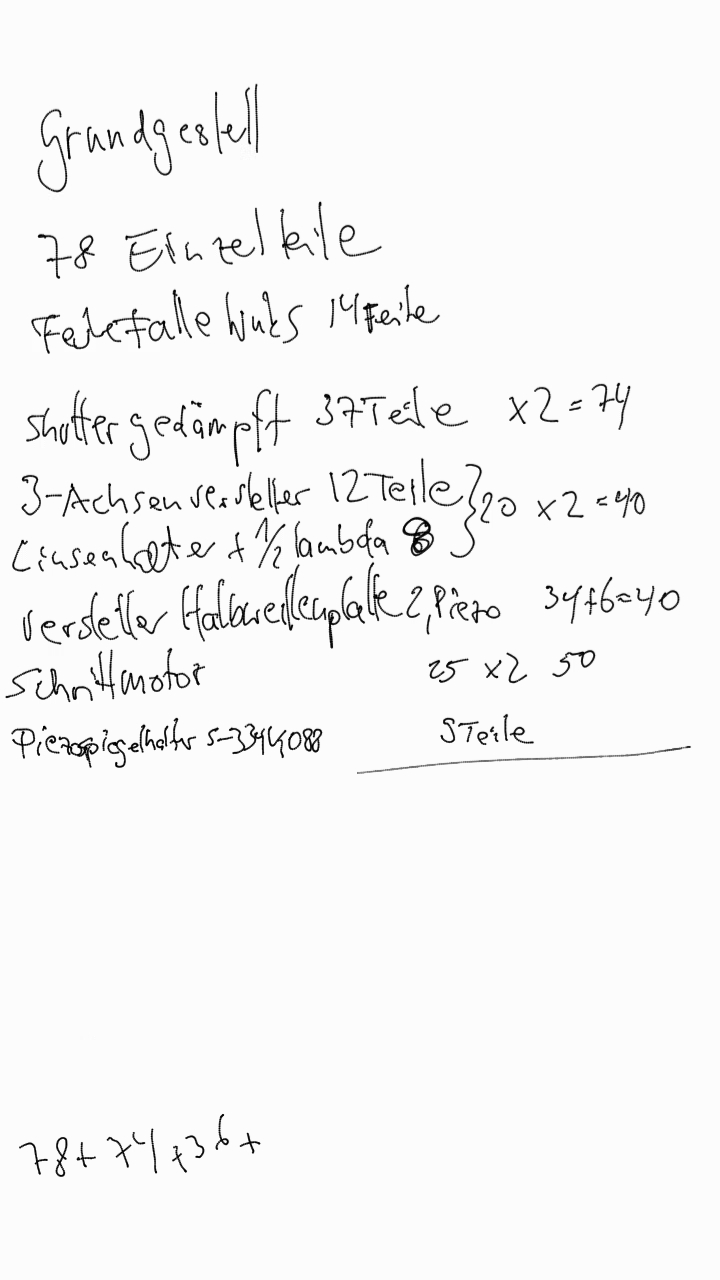 Grundgestell
78 Einzelteile
links 14 Teile
shutter gedämpft 37 Teile x2=74
3-Achsenversteller 12 Teile } 20 x2=40
Linsenhalter + 1/2 lambda 8
Versteller Halbwellenplatte 2, Piezo 34+6=40
Schrittmotor 25 x2 50
Piezospiegelhalter S-334 5 Teile
78+74+36+